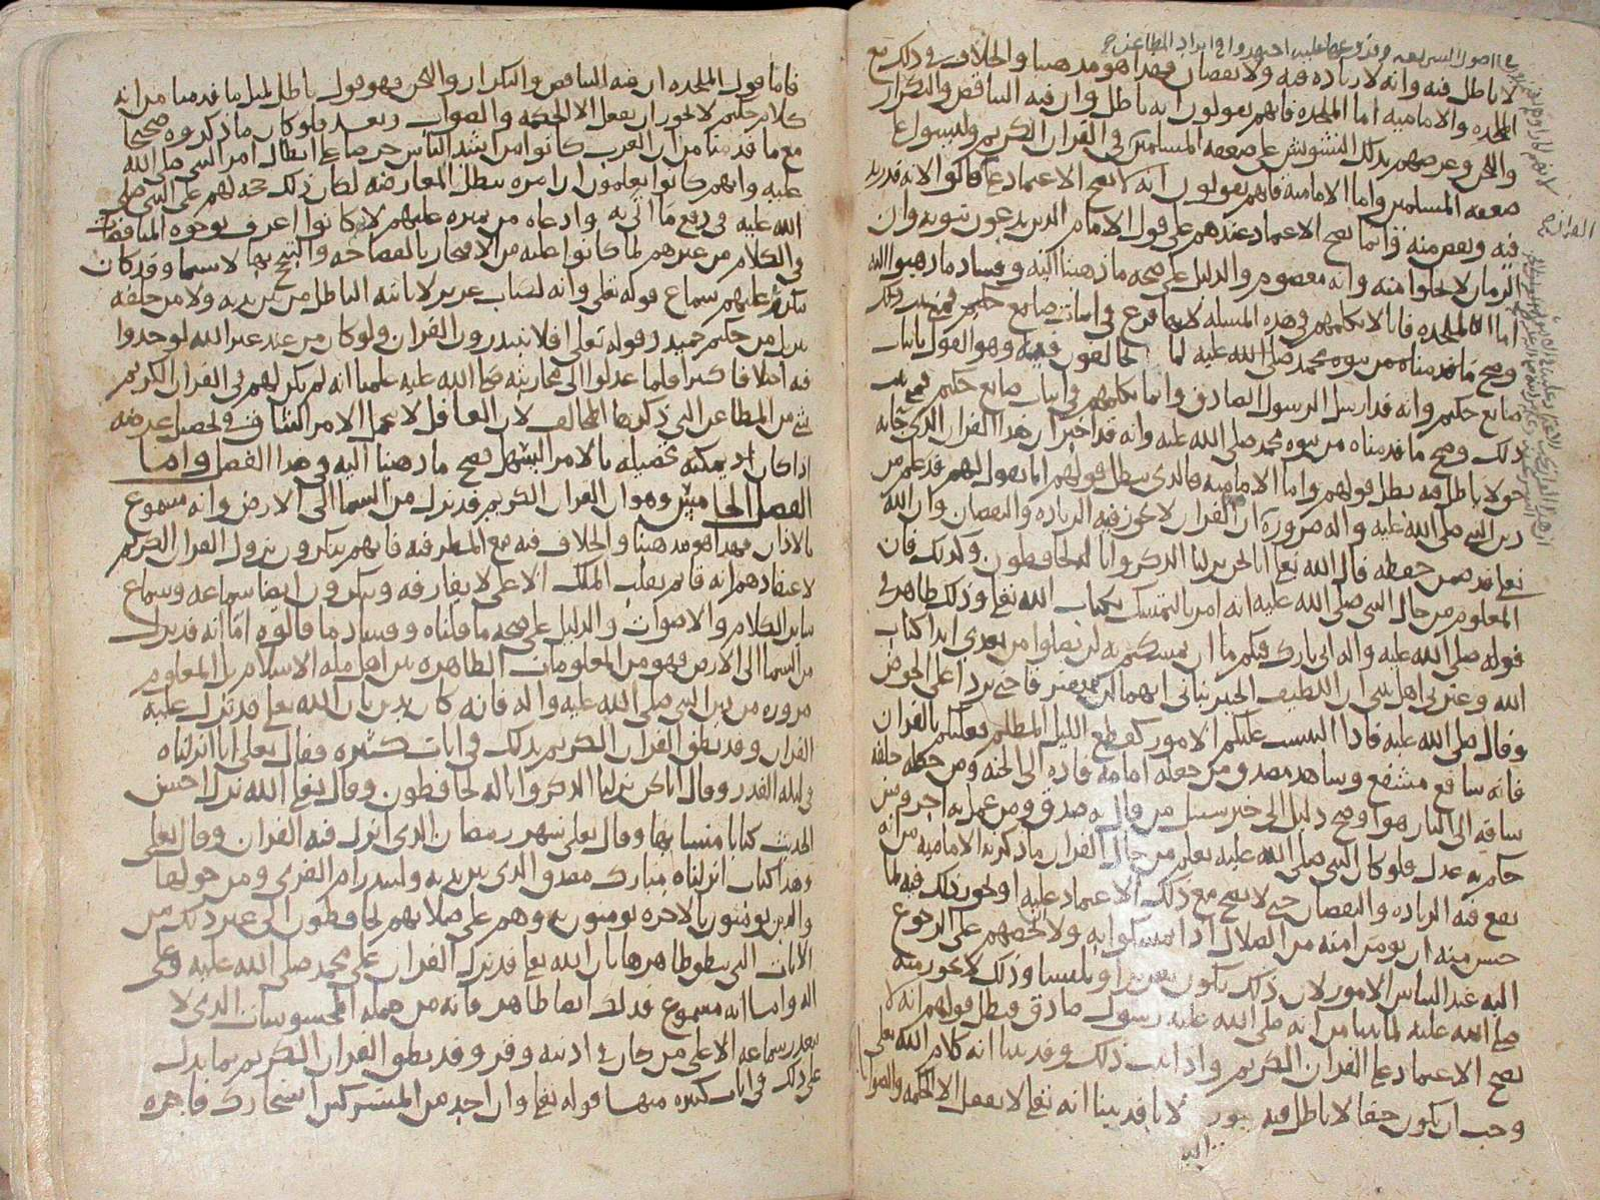 لا باطل فيه وانه لا زياده فيه ولا نقصان فهذا هو مذهبنا والخلاف في ذلك مع
الملحده والاماميه اما الملحده فانهم يقولون انه باطل وان فيه التناقض والتكرار
واللحن وغرضهم بذلك التشويش على ضعفه المسلمين في القران الكريم
ضعفه المسلمين واما الاماميه فانهم يقولون انه لا يصح الاعتماد على
فيه ونقص منه وانما يصح الاعتماد عندهم على قول الامام الذين يدعون ثبوته وان
الزمان لا يخلوا منه وانه معصوم والدليل على صحه ما ذهبنا اليه وفساد ما ذهبوا اليه
اما الملحده فانا لا نكلمهم في هذه المسله لانها فرع في اثبات صانع حكيم
وصح ما قدمناه من نبوه محمد صلى الله عليه وهو القول باثبات
صانع حكيم وانه قد ارسل الرسول الصادق وانما نكلمهم في اثبات صانع حكيم
ذلك وصح ما قدمناه من نبوه محمد صلى الله عليه وانه قد اخبر ان هذا القران الذي جا به
حق لا باطل فيه بطل قولهم واما الاماميه فالذي يبطل قولهم انا نقول لهم قد علم من
دين النبي صلى الله عليه واله ضرورة ان القران لا يجوز فيه الزياده والنقصان وان الله
تعلى قد ضمن حفظه قال الله تعلى انا نحن نزلنا الذكر وانا له لحافظون وكذلك فان
المعلوم من حال النبي صلى الله عليه انه امر بالتمسك بكتاب الله تعلى وذلك ظاهر في
قوله صلى الله عليه واله اني تارك فيكم ما ان تمسكتم به لن تضلوا من بعدي ابدا كتاب
الله وعترتي اهل بيتي ان اللطيف الخبير نباني انهما لن يفترقا حتى يردا على الحوض
وقال صلى الله عليه فاذا التبست عليكم الامور كقطع الليل المظلم فعليكم بالقران
فانه شافع مشفع وشاهد مصدق من جعله امامه قاده الى الجنه ومن جعله خلفه
ساقه الى النار هو اوضح دليل الى خير سبيل من قال به صدق ومن عمل به اجر ومن
حكم به عدل فلو كان النبي صلى الله عليه يعلم من حال القران ما ذكرته الاماميه من انه
يقع فيه الزياده والنقصان حتى لا يصح مع ذلك الاعتماد عليه او يجوز ذلك فيه لما
حسن منه ان يومن امته من الضلال اذا تمسكوا به ولا يحضهم على الرجوع
اليه عند التباس الامور لان ذلك يكون تغريرا وتلبيسا وذلك لا يجوز منه
صلى الله عليه لما بينا من انه صلى الله عليه رسول صادق فبطل قولهم انه لا
يصح الاعتماد على القران الكريم واذا ثبت ذلك وقد بينا انه كلام الله تعلى
وجب ان يكون حقا لا باطل فيه لانا قد بينا انه تعلى لا يفعل الا الحكمه والصواب
فاما قول الملحده ان فيه التناقض والتكرار واللحن فهو قول باطل لمثل ما قدمنا من انه
كلام حكيم لا يجوز ان يفعل الا الحكمه والصواب وبعد فلو كان ما ذكروه صحيحا
مع ما قدمنا من ان العرب كانوا من اشد الناس حرصا على ابطال امر النبي صلى الله
عليه وانهم كانوا يعلمون ان امره يبطل المعارضه لكان ذلك حجه لهم على النبي صلى
الله عليه في دفع ما اتى به وادعاه من تميزه عليهم لانهم كانوا اعرف بوجوه المناقضات
في الكلام من غيرهم لما كانوا عليه من الافتخار بالفصاحه والتبجح بها لا سيما وقد كان
يكرر عليهم سماع قوله تعلى وانه لكتاب عزيز لا ياتيه الباطل من بين يديه ولا من خلفه
تنزيل من حكيم حميد وقوله تعلى افلا يتدبرون القران ولو كان من عند غير الله لوجدوا
فيه اختلافا كثيرا فلما عدلوا الى محاربته صلى الله عليه علمنا انه لم يكن لهم في القران الكريم
شي من المطاعن التي ذكرها المخالف لان العاقل لا يحمل الامر الشاق في تحصيل غرضه
اذا كان يمكنه تحصيله بالامر السهل فصح ما ذهبنا اليه في هذا الفصل واما
الفصل الخامس وهو ان القران الكريم قد نزل من السما الى الارض وانه مسموع
بالاذان فهذا هو مذهبنا والخلاف فيه مع المطرفيه فانهم ينكرون نزول القران الكريم
لاعتقادهم انه قايم بقلب الملك الاعلى لا يفارقه وينكرون ايضا سماعه وسماع
ساير الكلام والاصوات والدليل على صحه ما قلناه وفساد ما قالوه اما انه قد نزل
من السما الى الارض فهو من المعلومات الظاهره بين اهل مله الاسلام بل المعلوم
ضروره من دين النبي صلى الله عليه واله فانه كان يدين بان الله تعلى قد نزل عليه
القران وقد نطق القران الكريم بذلك في ايات كثيره فقال تعلى انا انزلناه
في ليله القدر وقال انا نحن نزلنا الذكر وانا له لحافظون وقال تعلى الله نزل احسن
الحديث كتابا متشابها وقال تعلى شهر رمضان الذي انزل فيه القران وقال تعلى
وهذا كتاب انزلناه مبارك مصدق الذي بين يديه ولتنذر ام القرى ومن حولها
والذين يومنون بالاخره يومنون به وهم على صلاتهم يحافظون الى غير ذلك من
الايات التي ينطق ظاهرها بان الله تعلى قد نزل القران على محمد صلى الله عليه وعلى
اله واما انه مسموع فذلك ايضا ظاهر فانه من جمله المحسوسات الذي لا
يتعذر سماعه الا على من كان في اذنيه وقر وقد نطق القران الكريم بما يدل
على ذلك في ايات كثيره منها قوله تعلى وان احد من المشركين استجارك فاجره